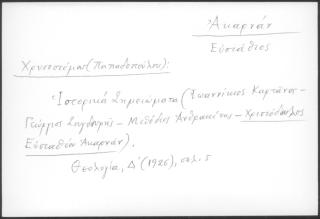 Ἀκαρνάν
Εὐστάθιος
Χρυσοστόμου (Παπαδοπούλου):
Ἱστορικὰ Σημειώματα (Ἰωαννίκιος Καρτάνος –
Γεώργιος Σουγδουρῆς – Μεθόδιος Ἀνθρακίτης – Χριστόδουλος
Εὐσταθίου Ἀκαρνάν).
Θεολογία, Δ' (1926), σελ. 5